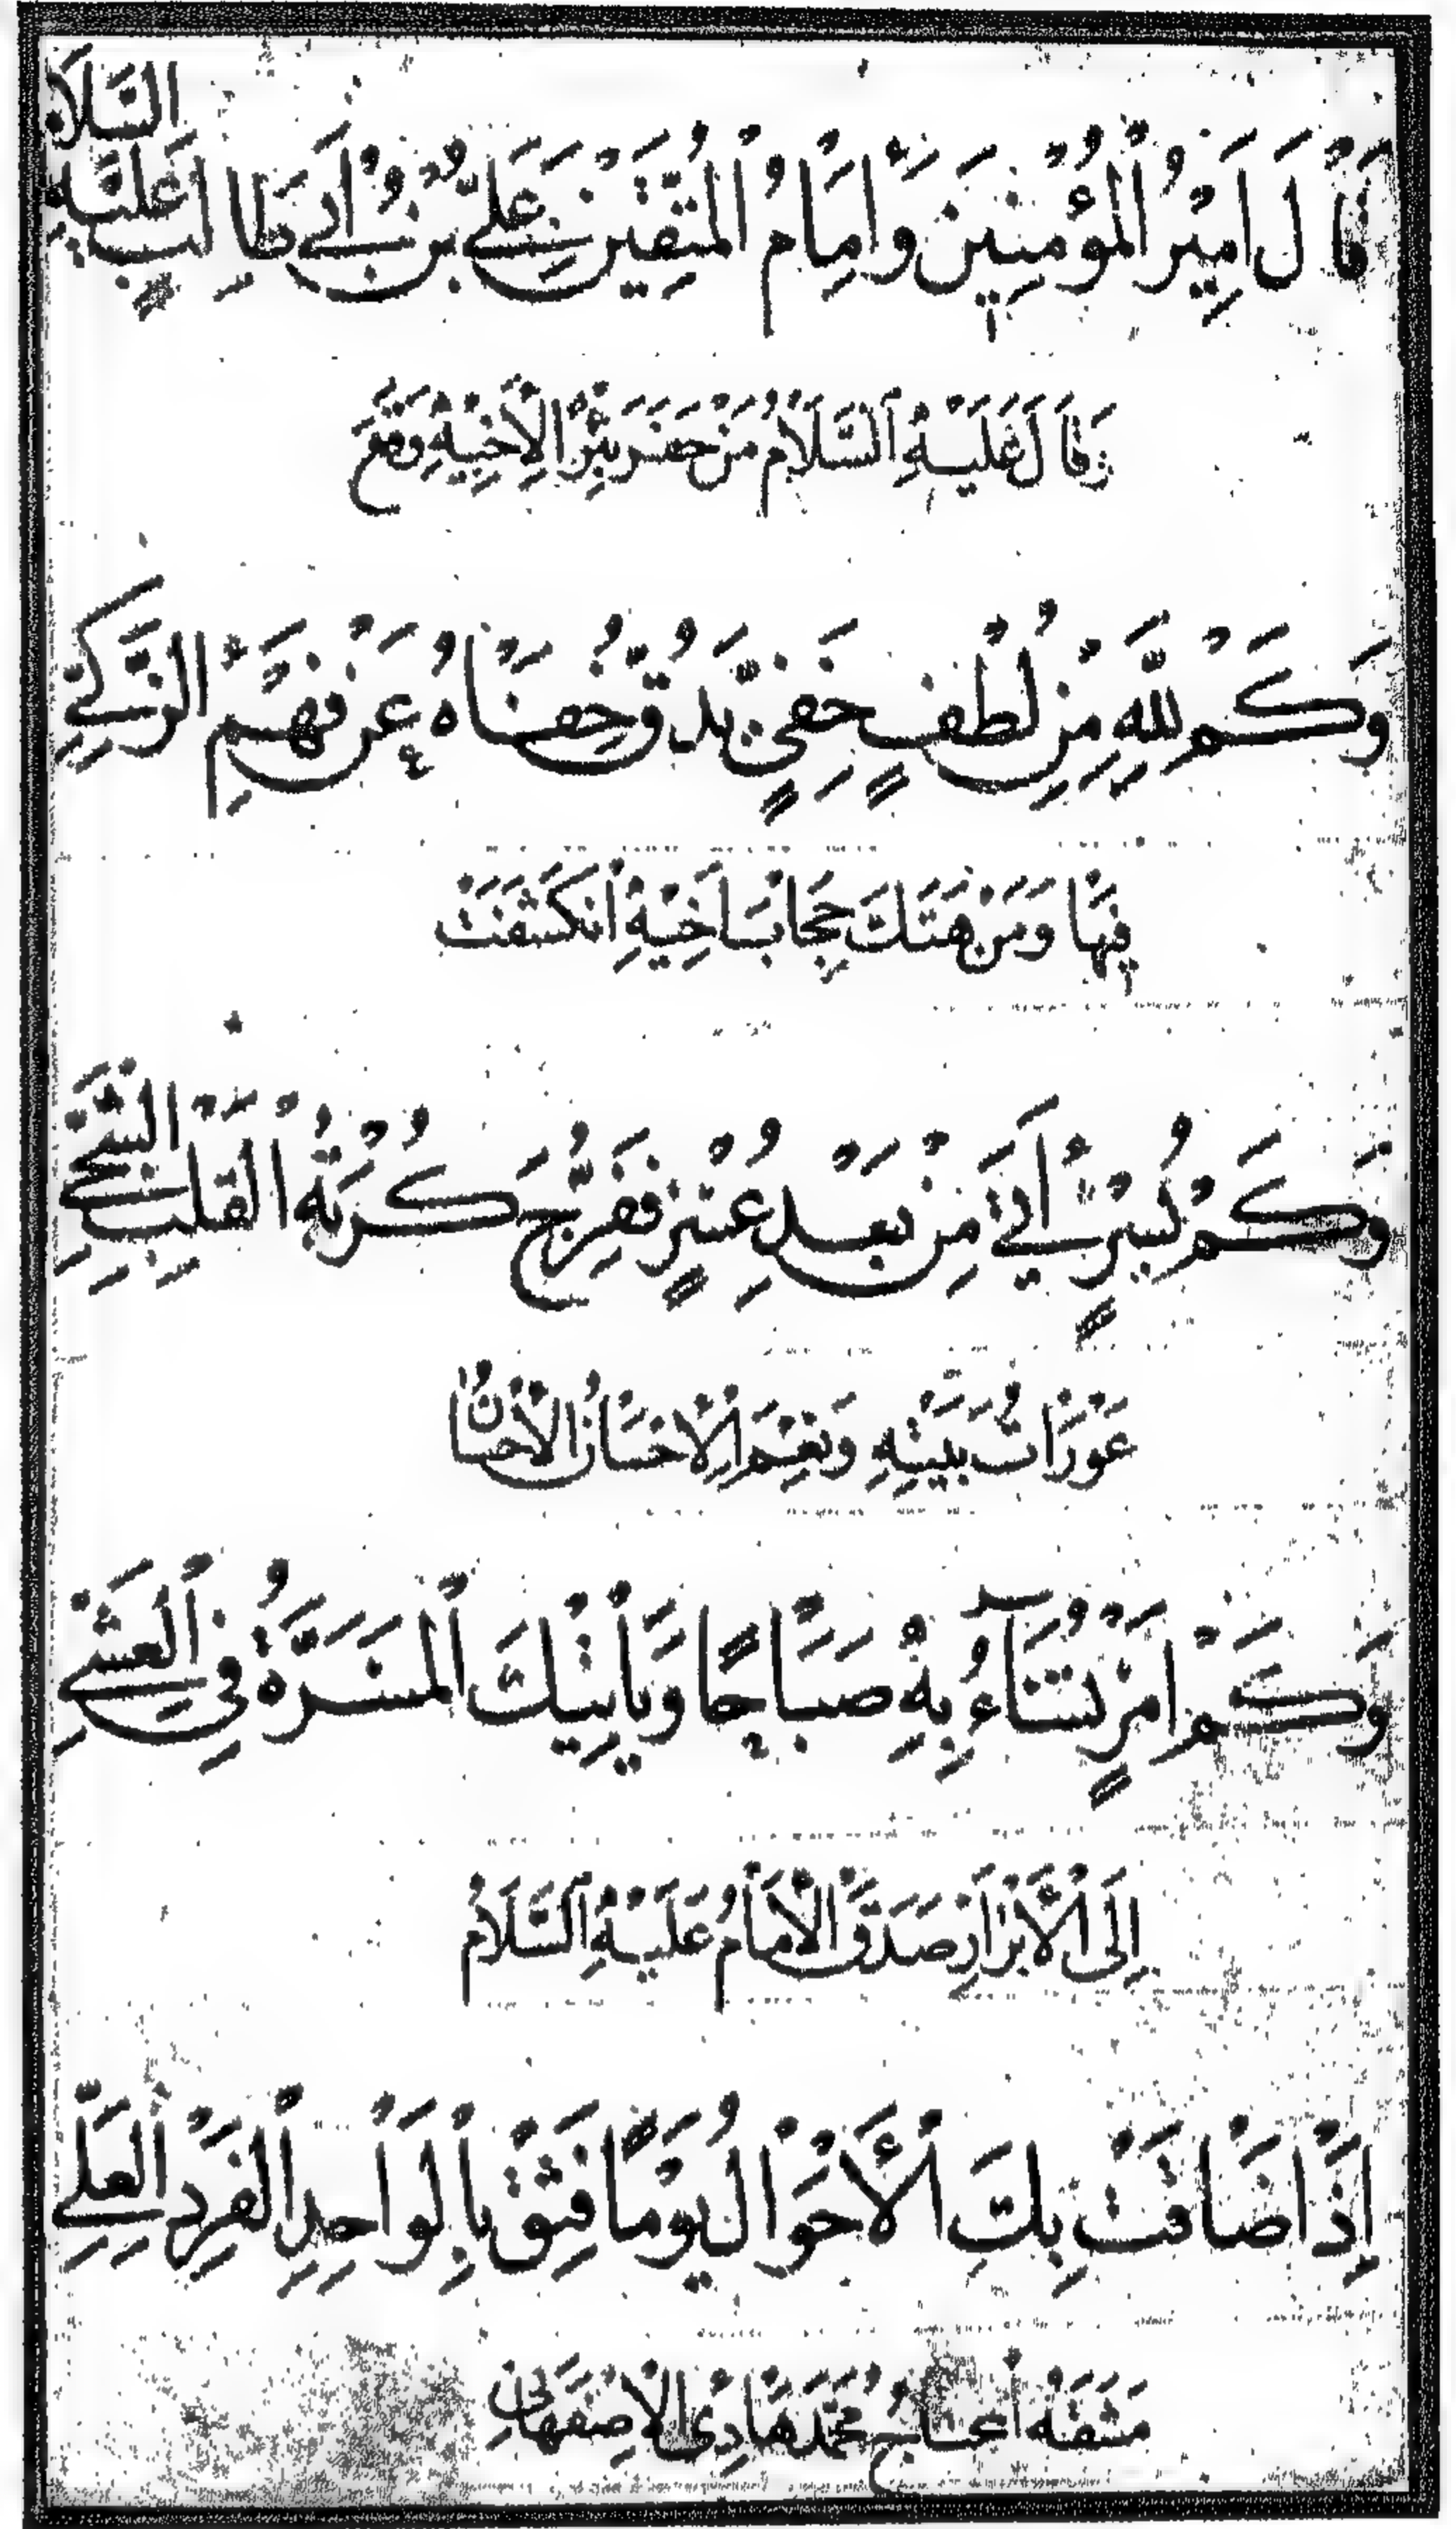 قَالَ اَمِيْرُ الْمُؤْمِنِيْنَ وَاِمَامُ الْمُتَّقِيْنَ عَلِيُّ بْنُ اَبِي طَالِبٍ عَلَيْهِ السَّلَامُ
قَالَ عَلَيْهِ السَّلَامُ مَنْ حَفَرَ بِئْرًا لِاَخِيْهِ وَقَعَ
وَكَمْ لِلّٰهِ مِنْ لُطْفٍ خَفِيٍّ يَدُقُّ خَفَاهُ عَنْ فَهْمِ الزَّكِيِّ
فِيْهَا وَمَنْ هَتَكَ حِجَابَ اَخِيْهِ انْكَشَفَتْ
وَكَمْ يُسْرٍ أَتَى مِنْ بَعْدِ عُسْرٍ فَفَرَّجَ كُرْبَةَ الْقَلْبِ الشَّجِيِّ
عَوْرَاتُ بَيْتِهِ وَنِعْمَ الْاِحْسَانُ الْاِحْسَانُ
وَكَمْ اَمْرٍ تُسَآءُ بِهِ صَبَاحًا وَيَأْتِيْكَ الْمَسَرَّةُ فِي الْعَشِيِّ
اِلَى الْأَبْرَارِ صَدَقَ الْاِمَامُ عَلَيْهِ السَّلَامُ
اِذَا ضَاقَتْ بِكَ الْأَحْوَالُ يَوْمًا فَثِقْ بِالْوَاحِدِ الْفَرْدِ الْعَلِيِّ
مَشَقَهُ مُحَمَّد هَادِى الْاِصْفَهَانِي